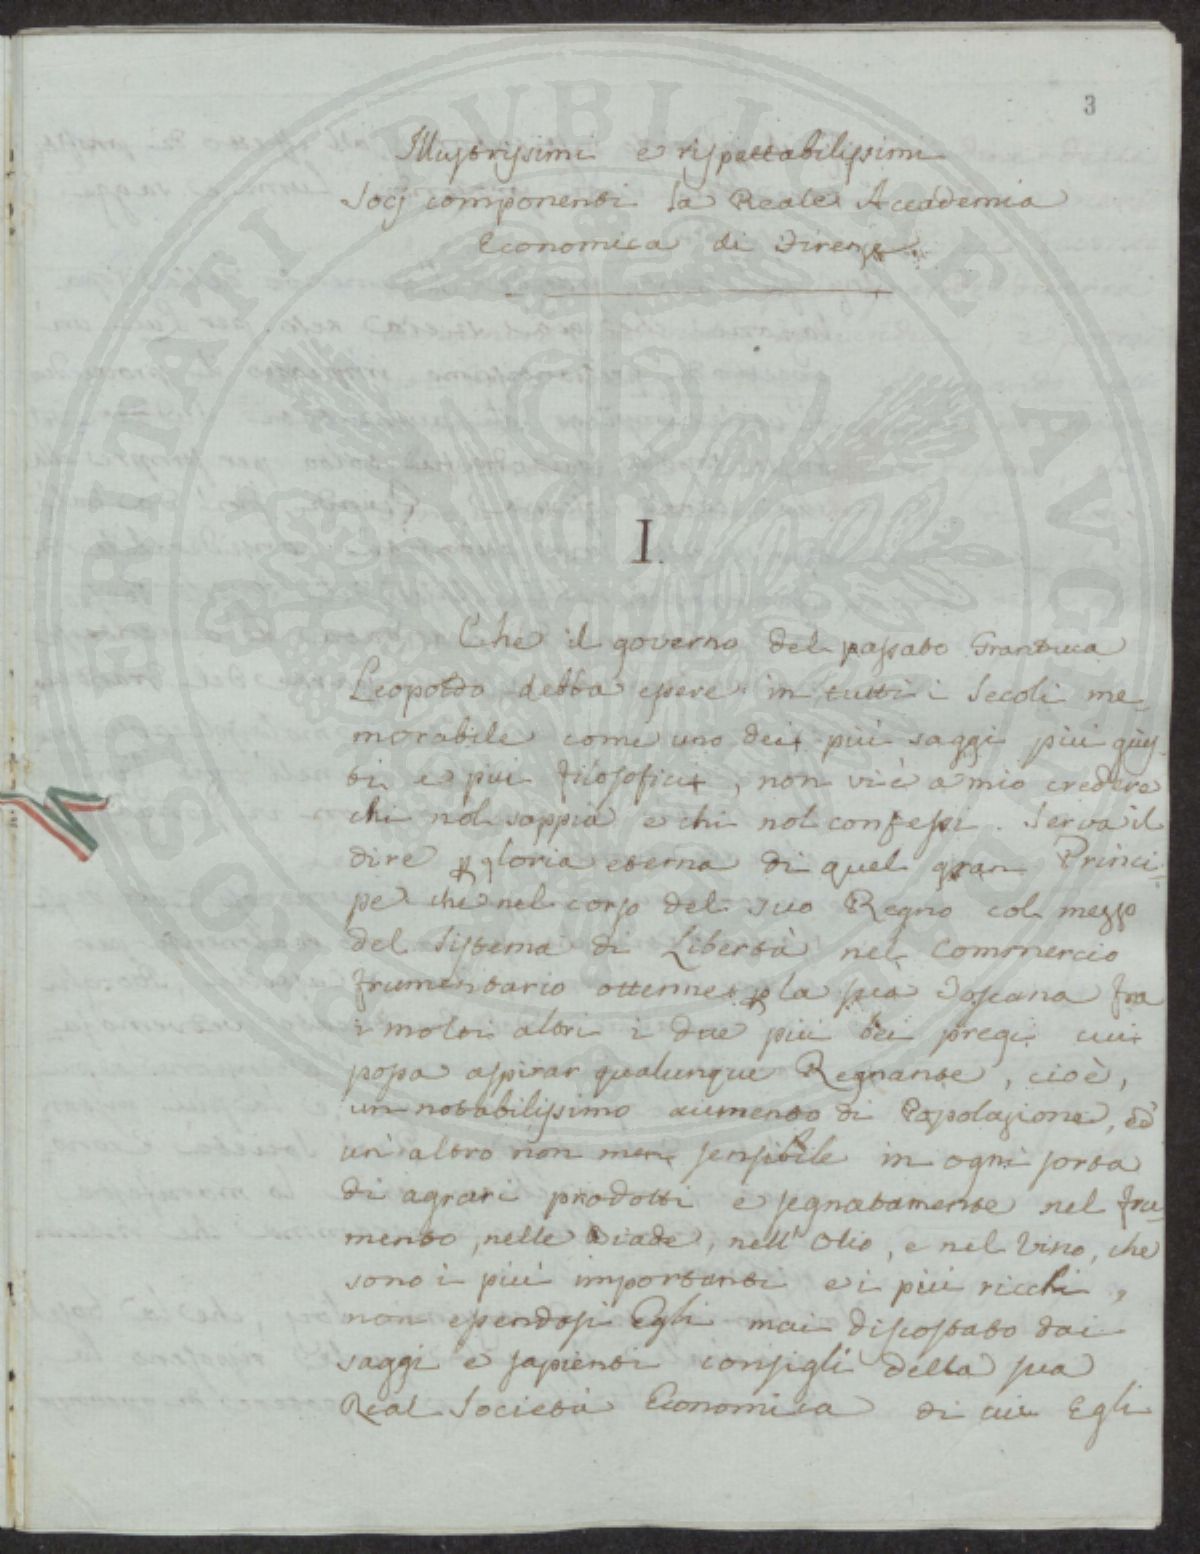 3
Illustrissimi e rispettabilissimi
Socj componenti la Reale Accademia
Economica di Firenze
I.
Che il governo del passato Granduca
Leopoldo debba essere in tutti i Secoli me
morabile come uno dei più saggi più gius-
ti, e più filosofici, non vi è a mio credere
chi nol sappia e chi nol confessi. Serva il
dire p gloria eterna di quel gran Princi-
pe che nel corso del suo Regno col mezzo
del Sistema di Libertà nel Commercio
frumentario ottenne p la sua Toscana fra
i molti altri i due più bei pregi cui
possa aspirar qualunque Regnante, cioè,
un notabilissimo aumento di Popolazione, ed
un altro non men sensibile in ogni sorta
di agrarj prodotti e segnatamente nel fru-
mento, nelle Biade, nell' Olio, e nel Vino, che
sono i più importanti e i più ricchi,
non essendosi Egli mai discostato dai
saggi e sapienti consigli della sua
Real Società Economica di cui Egli
PROSPERITATI PVBLICAE AVGENDAE